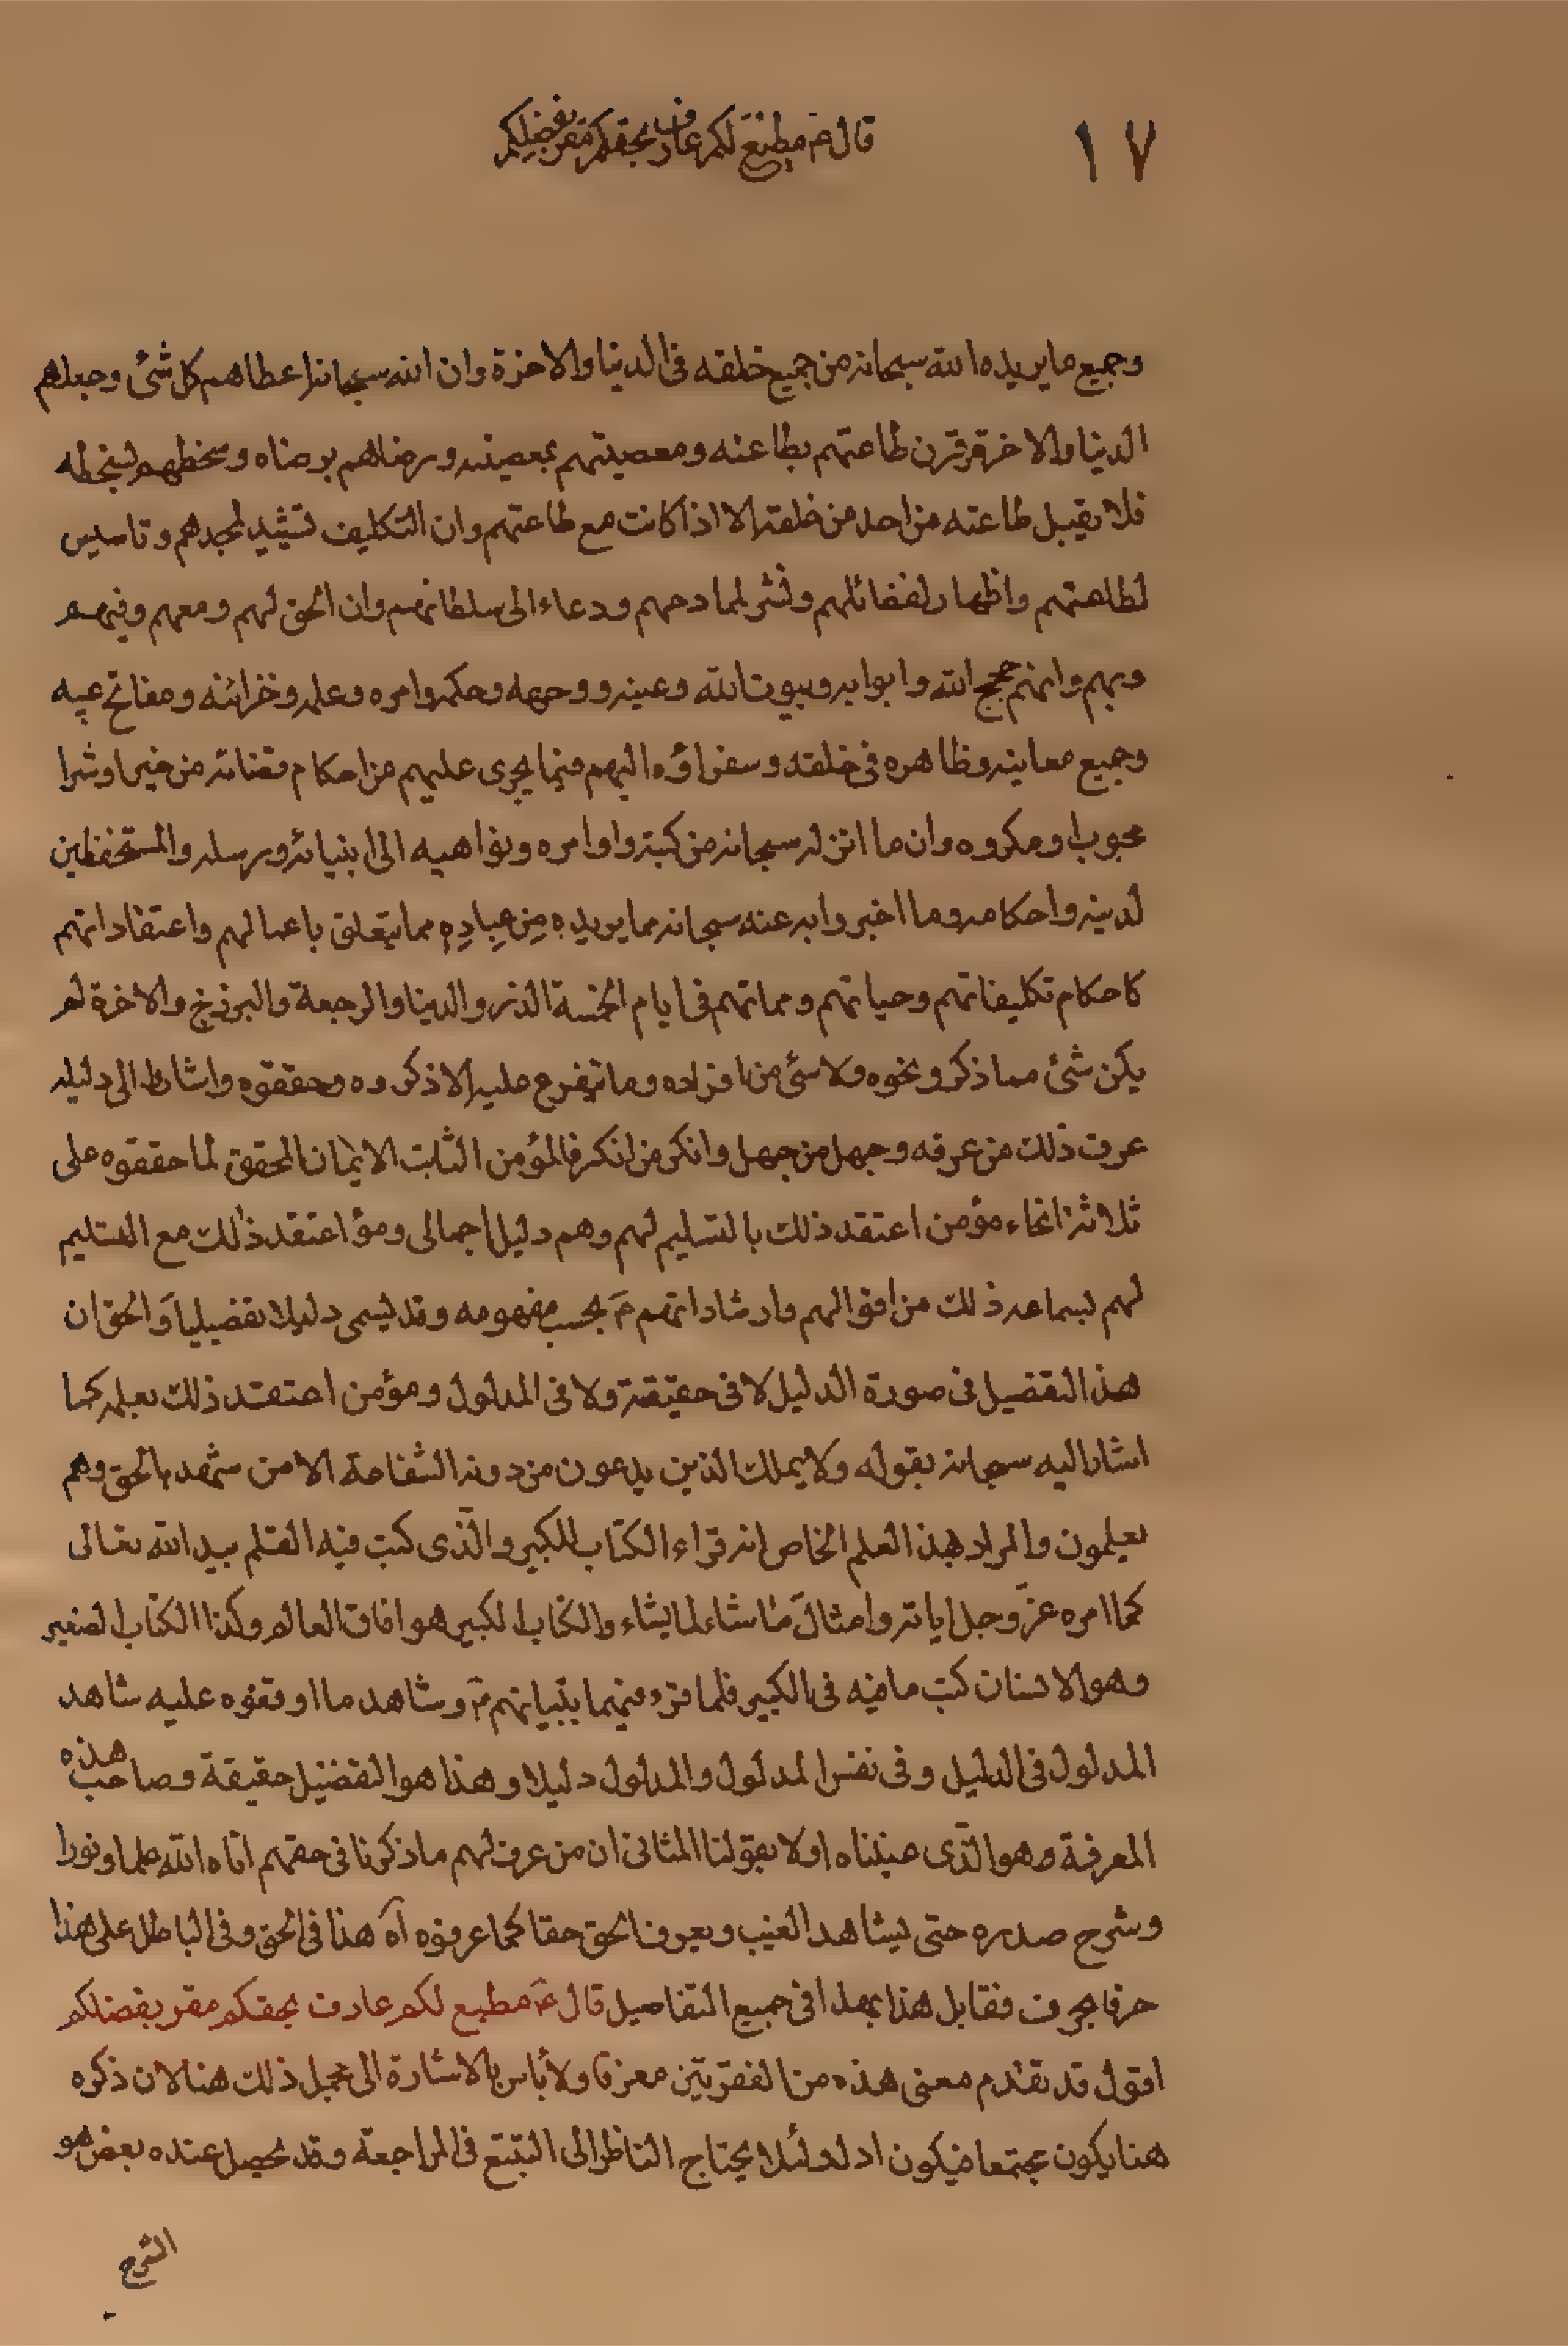 ١٧
قال ع مطيع لكم عارف بحقكم مقر بفضلكم
وجميع ما يريده الله سبحانه من جميع خلقه فى الدنيا والاخرة وان الله سبحانه اعطاهم كل شئ وجعلهم
الدنيا والاخرة وقرن طاعتهم بطاعته ومعصيتهم بمعصيته ورضاهم برضاه وسخطهم بسخطه
فلا يقبل طاعته من احد من خلقه الا اذا كانت مع طاعتهم وان التكليف تشييد لمجدهم وتاسيس
لطاعتهم واظهار لفضائلهم ونشر لممادحهم ودعاء الى سلطانهم وان الحق لهم ومعهم وفيهم
وبهم وانهم حجج الله وابوابه وبيوت الله وعينه ووجهه وحكمه وامره وعلمه وخزائنه ومفاتح غيبه
وجميع معانيه وظاهره فى خلقه وسفراؤه اليهم فيما يجرى عليهم من احكام قضائه من خير او شر ا
محبوب او مكروه وان ما انزله سبحانه من كتبه واوامره ونواهيه الى انبيائه ورسله والمستحفظين
لدينه واحكامه وما اخبروا به عنه سبحانه مما يريده مِن عِبادِهِ مما يتعلق باعمالهم واعتقاداتهم
كاحكام تكليفاتهم وحياتهم ومماتهم فى ايام الخمسة الذر والدنيا والرجعة والبرزخ والاخرة لم
يكن شئ مما ذكر ونحوه ولا شئ من افراده وما يتفرع عليه الا ذكروه وحققوه واشاروا الى دليله
عرف ذلك من عرفه وجهل من جهل وانكر من انكر فالمؤمن الثابت الايمان المحقق لما حققوه على
ثلاثة انحاء مؤمن اعتقد ذلك بالتسليم لهم وهم دليل اجمالى ومؤ اعتقد ذلك مع التسليم
لهم بسماعه ذلك من اقوالهم وارشاداتهم ع بحسب مفهومه وقد يسمى دليلا تفصيليا والحق ان
هذا التفصيل فى صورة الدليل لا فى حقيقته ولا فى المدلول ومؤمن اعتقد ذلك بعلمه كما
اشار اليه سبحانه بقوله ولا يملك الذين يدعون من دونه الشفاعة الا من شهد بالحق وهم
يعلمون والمراد بهذا العلم الخاص انه قراء الكتاب الكبير والّذى كتب فيه القلم بيد الله تعالى
كما امره عزّ وجل اياته وامثال ما شاء لما يشاء والكتاب الكبير هو افاق العالم وكذا الكتاب الصغير
وهو الانسان كتب ما فيه فى الكبير فلما قرء فيهما بتبيانهم ع وشاهد ما اوقفوه عليه شاهد
المدلول فى الدليل وفى نفس المدلول والمدلول دليلا وهذا هو التفضيل حقيقة وصاحب هذه
المعرفة وهو الّذى عنيناه اولا بقولنا المثانى ان من عرف لهم ما ذكرنا فى حقهم اتاه الله علما ونورا
وشرح صدره حتى يشاهد الغيب ويعرف الحق حقا كما عرفوه اه هذا فى الحق وفى الباطل على هذا
حرفا بحرف فقابل هذا بهذا فى جميع التفاصيل قال ع مطيع لكم عارف بحقكم مقر بفضلكم
اقول قد تقدم معنى هذه من الفقرتين مفرقا ولا باس بالاشارة الى مجمل ذلك هنا لان ذكره
هنا يكون مجتمعا فيكون ادل ولئلا يحتاج الناظر الى التتبع فى المراجعة وقد يحصل عنده بعض هو
الشرح